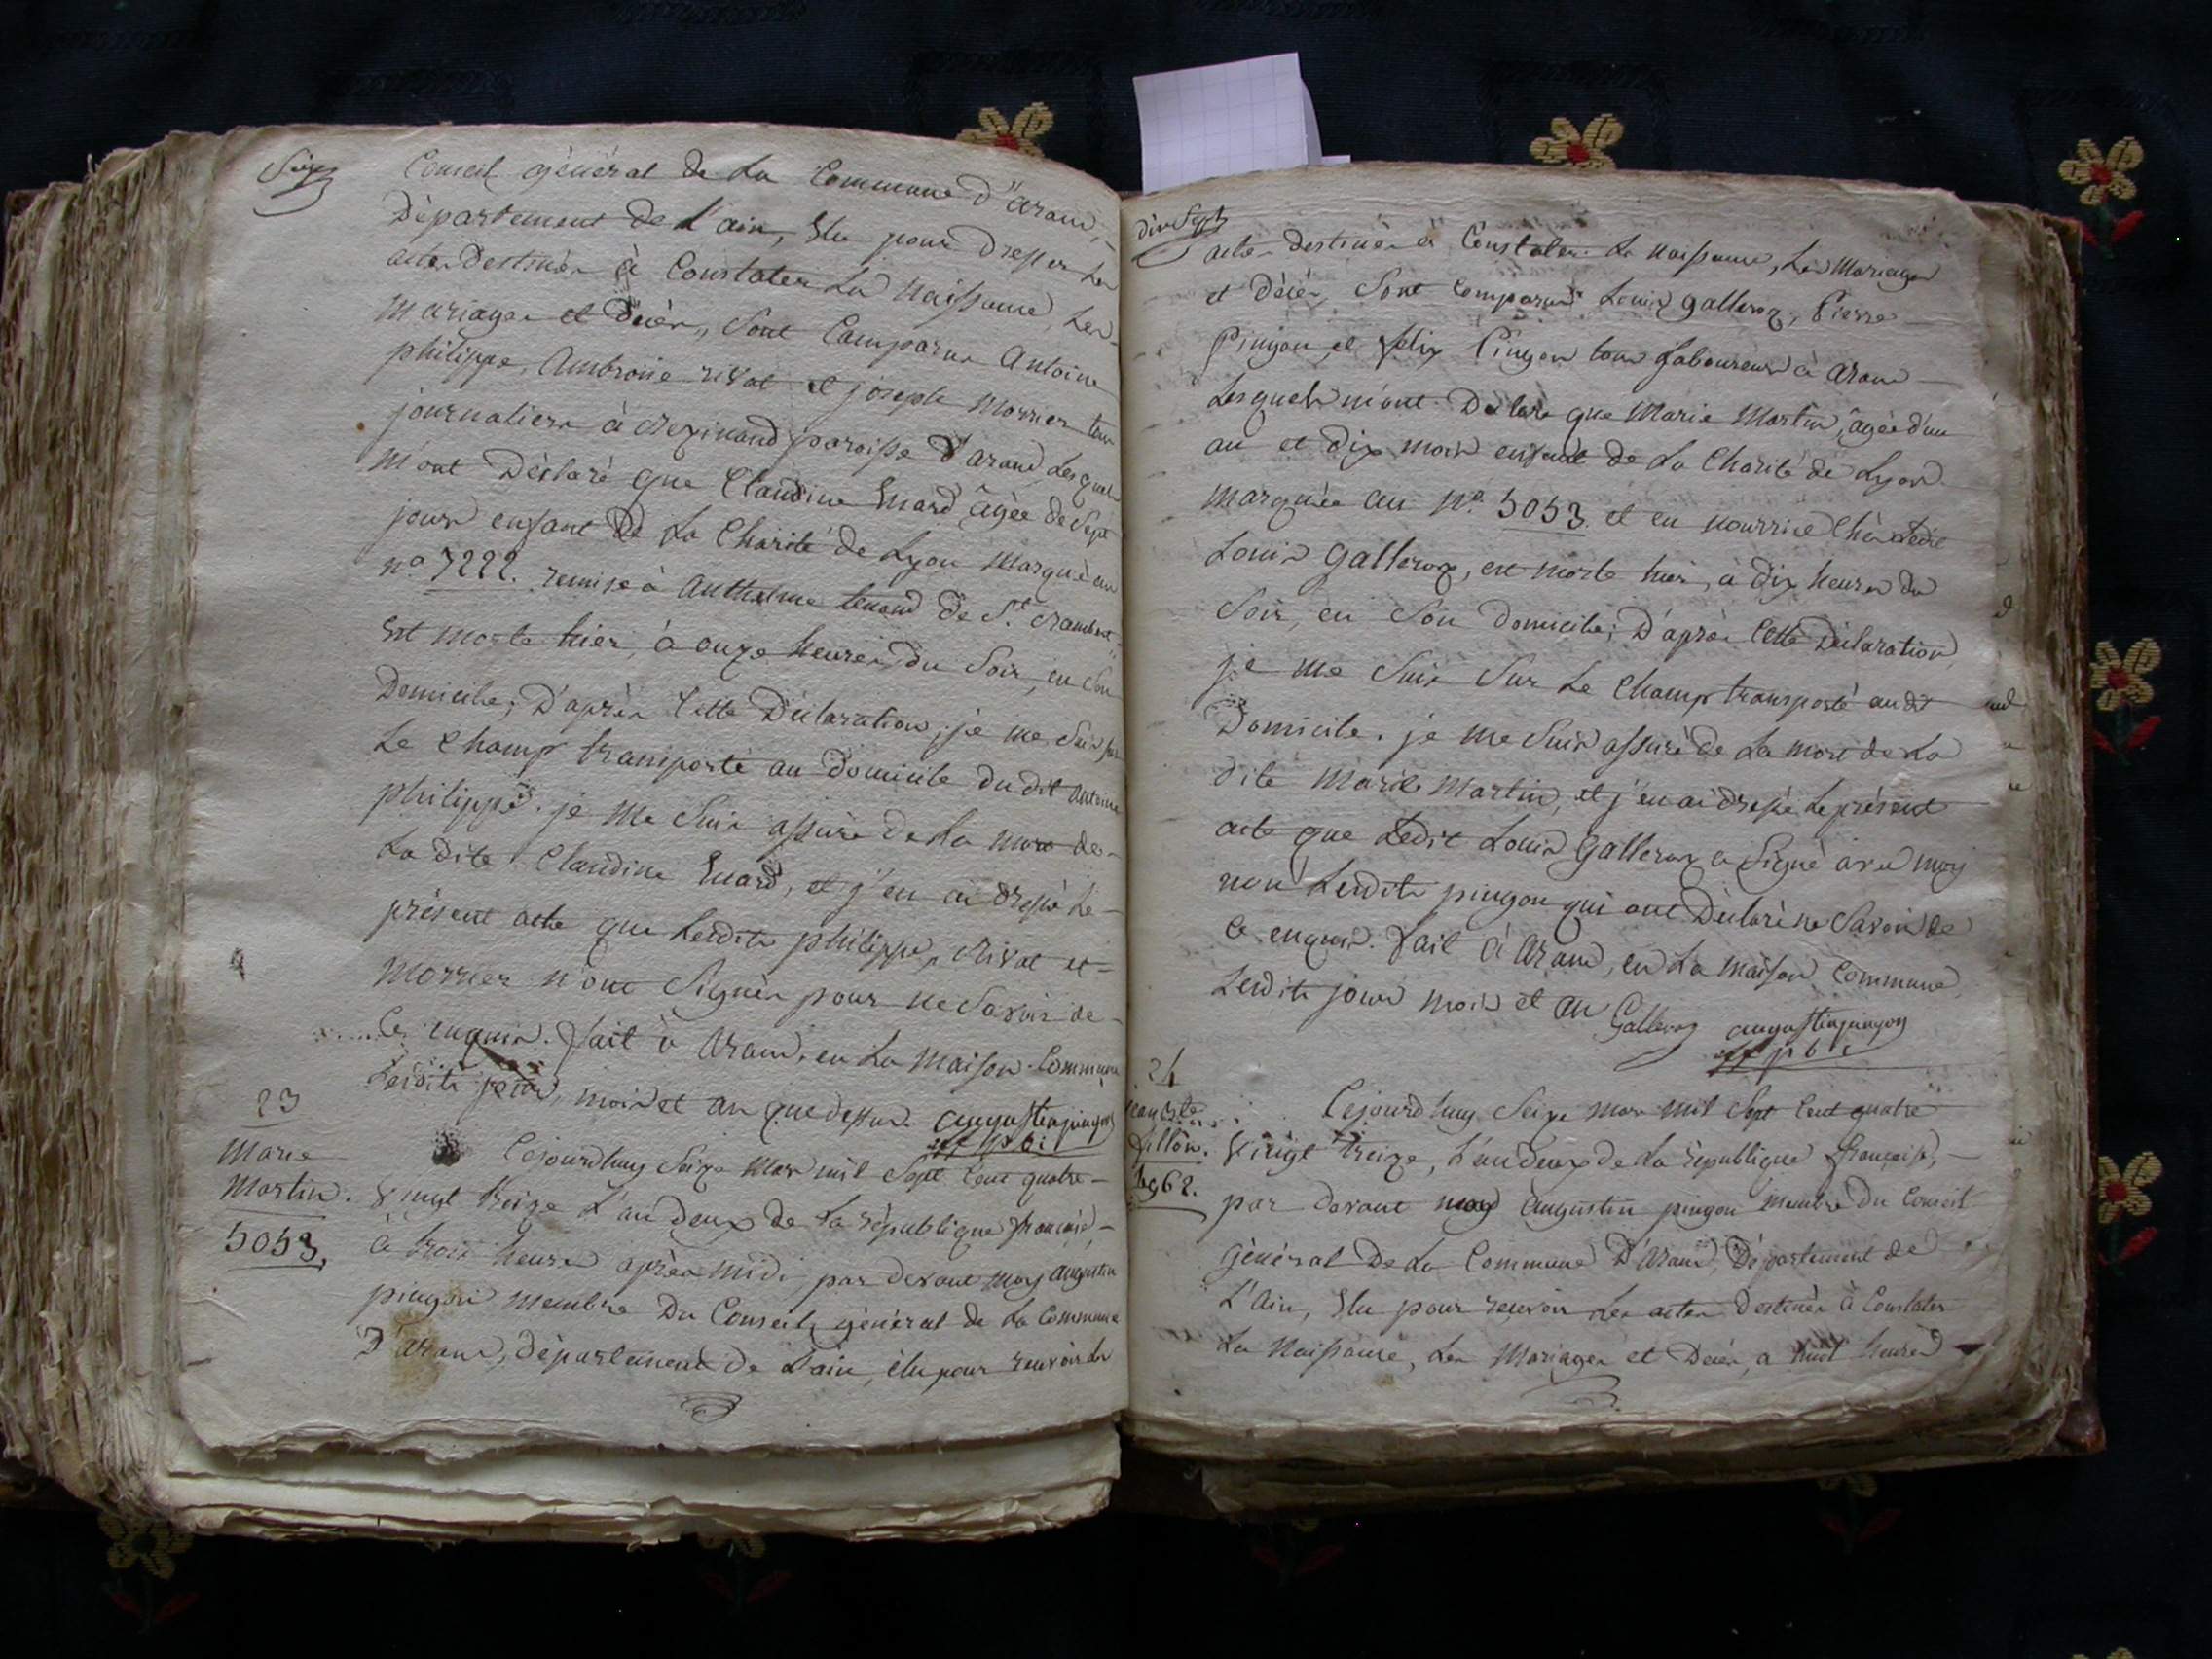 Seize
Conseil général de La Commune d'aranc,
Département de L'ain, Elu pour Dresser Les
actes Destinés à Constater La Naissance, Les
Mariages et Décès, Sont Comparus Antoine
philippe, Ambroise rivat et joseph Morrier tous
journaliers à paroisse D'aranc, Lesquels
M'ont Déclaré que Claudine Enard âgée de Sept
jours enfant De La Charité de Lyon Marquée au
n° 7222. remise à Anthelme tenand De St. rambert
Est morte hier, à onze heures du Soir, en Son
Domicile; D'après Cette Déclaration, je me Suis Sur
Le Champ transporté au Domicile du dit Antoine
philippe. je Me Suis assuré De La mort de
La dite Claudine Enard, et j'en ai Dressé Le
présent acte que Lesdits philippe, Rivat et
Morrier n'ont Signés pour ne Savoir de
Ce enquis. fait à Aranc, en La Maison Commune
Lesdits jour, mois et an que dessus. augustin pingon
23
Marie
Martin.
5053.
Cejourdhuy Seize Mars mil Sept Cent quatre
Vingt treize L'an Deux de La république francaise,
à trois heures après midi par devant moy Augustin
pingon Membre Du Conseil général de La Commune
D'aranc, département de L'ain, élu pour recevoir Les
dix Sept
actes Destinés à Constater La Naissance, Les Mariages
et Décès, Sont Comparus Louis Galleroz, Pierre
Pingon et felix Pingon tous Laboureurs à Aranc
Lesquels m'ont Déclaré que Marie Martin, âgée d'un
an et dix mois enfant de La Charité de Lyon
Marquée au N° 5053. et en nourrice Chès Ledit
Louis Galleroz, est morte hier, à dix heures du
Soir, en Son Domicile; D'après Cette Déclaration,
je me Suis Sur Le Champ transporté au dit
Domicile. je me Suis assuré de La mort de La
dite Marie Martin, et j'en ai dressé Le présent
acte que Ledit Louis Galleroz a Signé avec moy
non Lesdits pingon qui ont Déclaré ne Savoir de
Ce enquis. fait à Aranc, en La Maison Commune,
Lesdits jour mois et an
Galleroz augustin pingon
24
fillon.
Cejourdhuy Seize Mars mil Sept Cent quatre
Vingt treize, L'an deux de La république française,
par devant moy Augustin pingon Membre Du Conseil
Général De La Commune D'Aranc, Département de
L'Ain, Elu pour recevoir Les actes Destinés à Constater
La Naissance, Les Mariages et Décès, a huit heures